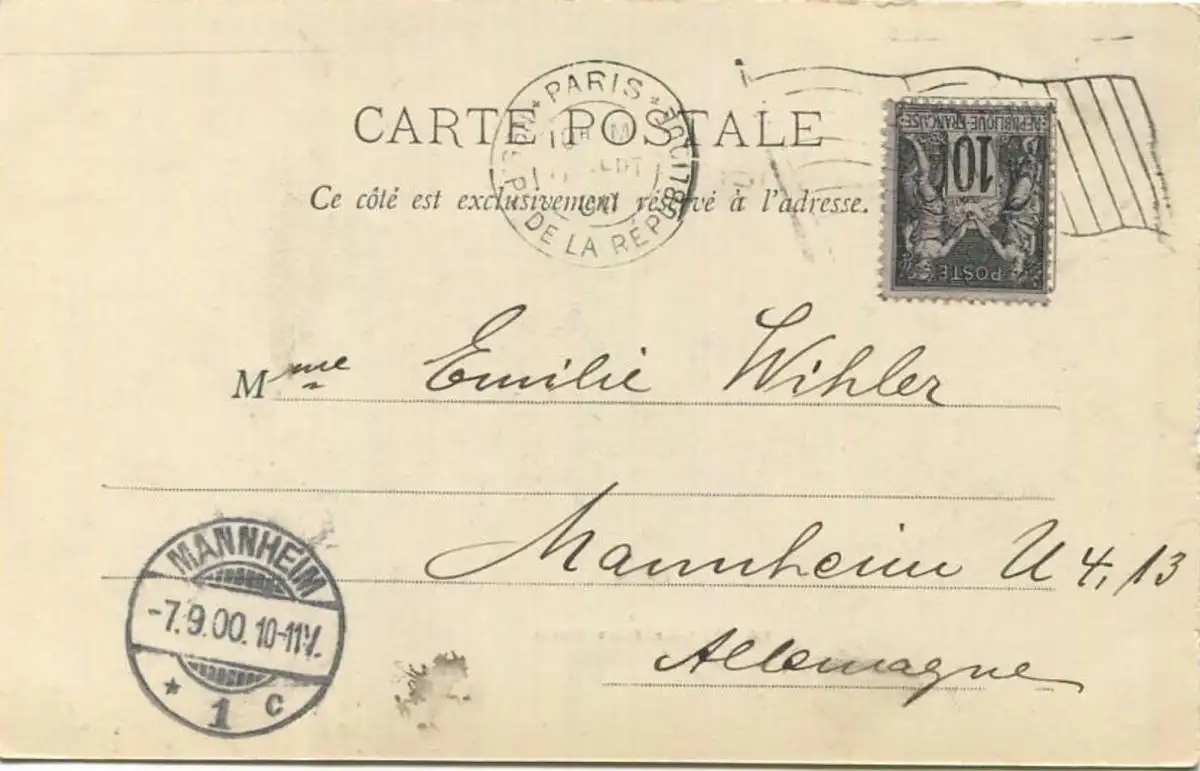 CARTE POSTALE
Ce côté est exclusivement réservé à l'adresse.
PARIS
DE LA RÉPUBLIQUE
REPUBLIQUE FRANÇAISE
10
POSTE
Mme Emilie Wihler
Mannheim U 4, 13
Allemagne
MANNHEIM
-7.9.00. 10-11V.
* 1 c